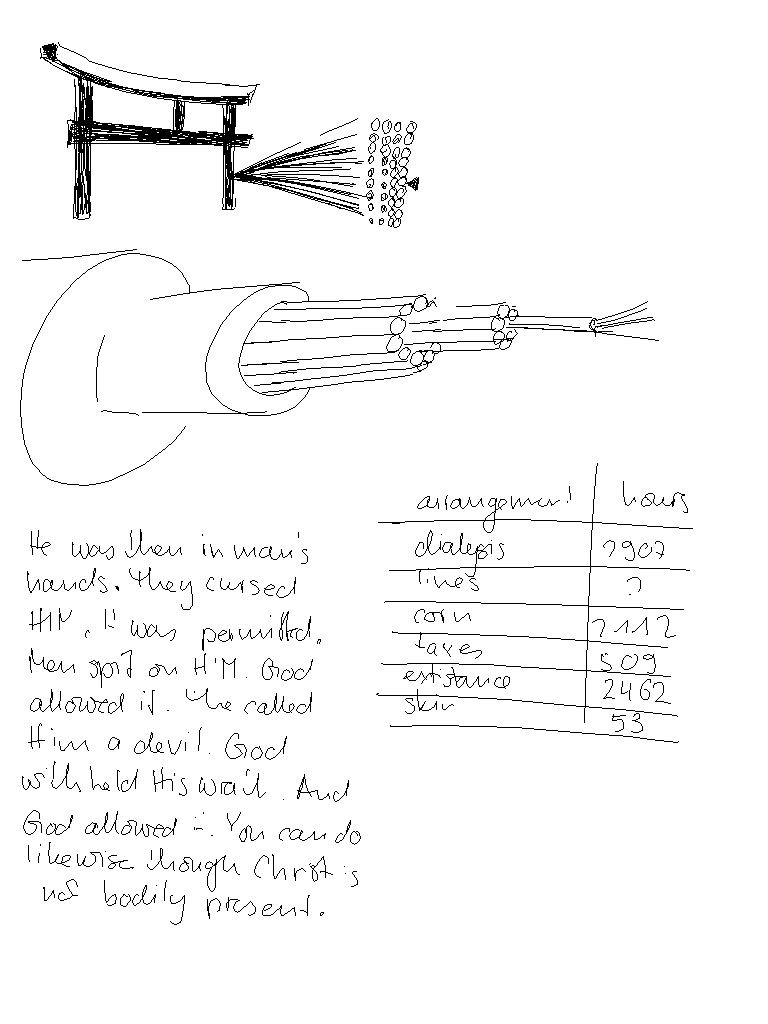 He was then in man's
hands. They cursed
HIM. It was permitted.
Men spit on HIM. God
allowed it. The called
Him a devil. God
withheld His wrath. And
God allowed it. You can do
likewise though Christ is
not bodily present.
arrangement hours
dialepis 7907
lines ?
corn 7112
taxes 509
existance 2462
skin 53